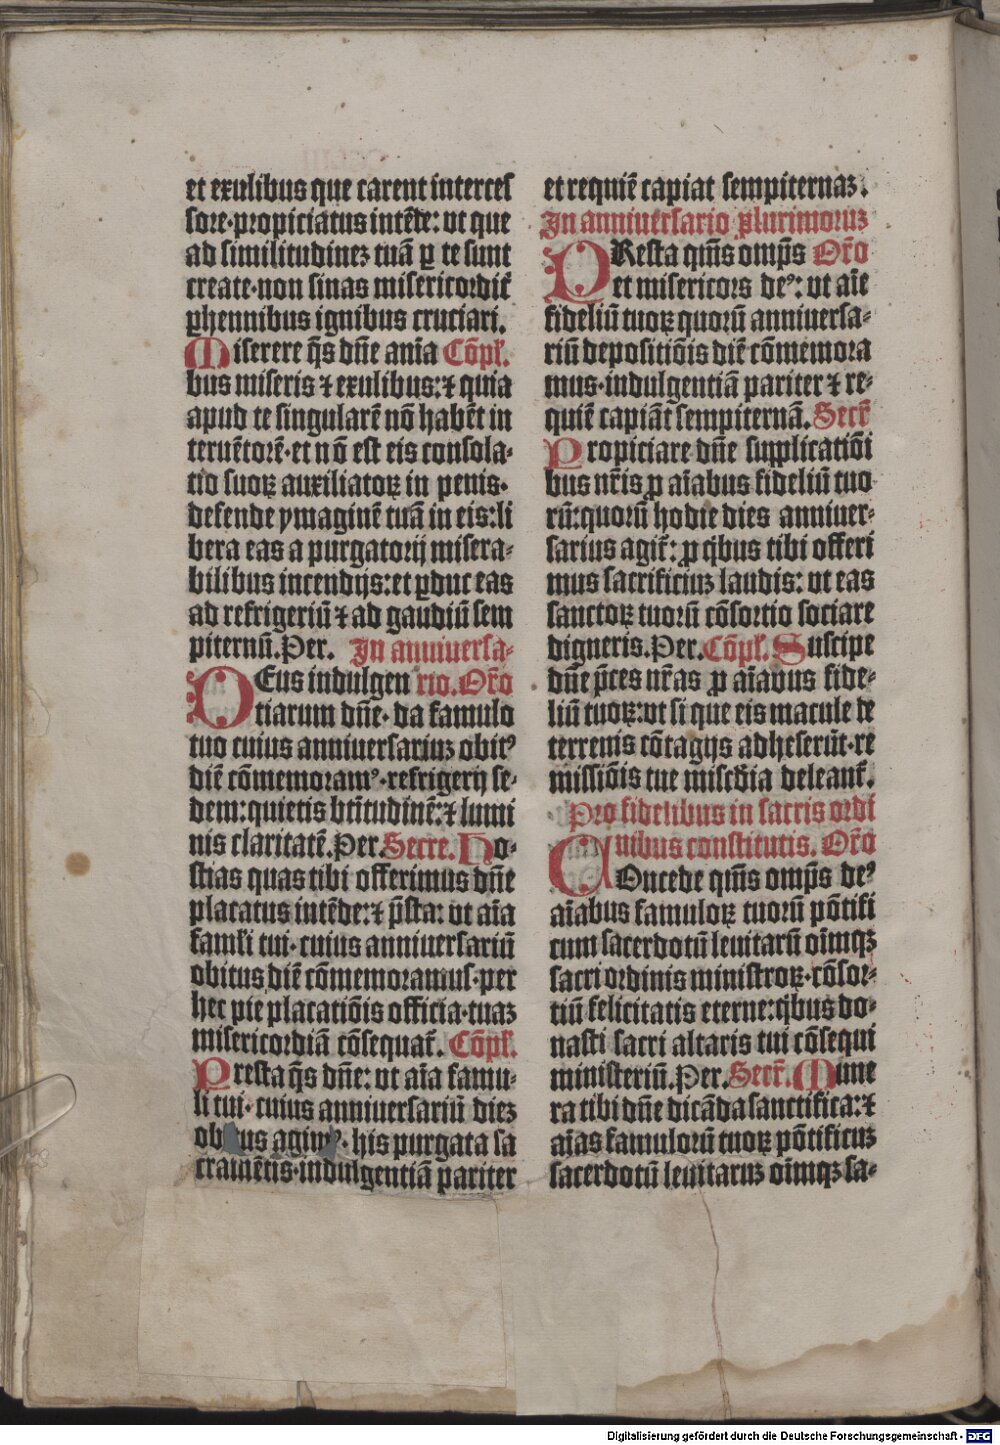 et exulibus que carent interces
sore·propiciatus intēde: vt que
ad similitudinez tuā ꝑ te sunt
create·non sinas misericordit̄
ꝑhennibus ignibus cruciari.
Miserere q̄s dn̄e anīa Cōpl̄.
bus miseris ⁊ exulibus:⁊ quia
apud te singularē nō habēt in
teruētorē·et nō est eis consola⸗
tio suoꝝ auxiliatoꝝ in penis·
defende ymaginē tuā in eis:li
bera eas a purgatorij misera⸗
bilibus incendijs:et ꝑduc eas
ad refrigeriū ⁊ ad gaudiū sem
piternū.Per. In anniuersa⸗
DEus indulgen rio.Or̄o
tiarum dn̄e·da famulo
tuo cuius anniuersariuz obitꝰ
diē cōmemoramꝰ·refrigerij se⸗
dem:quietis bt̄itudinē:⁊ lumi
nis claritatē.Per.Secre.Ho⸗
stias quas tibi offerimus dn̄e
placatus intēde:⁊ p̄sta: vt aīa
famĺi tui·cuius anniuersariū
obitus diē cōmemoramus·per
hec pie placatiōis officia·tuaz
misericordiā cōsequat̄. Cōpl̄.
Presta q̄s dn̄e: vt aīa famu⸗
li tui·cuius anniuersariū diez
obitus agimꝰ·his purgata sa
cramētis·indulgentiā pariter
et requiē capiat sempiternaz.
In anniuersario plurimoruz
PResta qm̄s omp̄s Or̄o
et misericors deꝰ: vt aīe
fideliū tuoꝝ quorū anniuersa⸗
riū depositiōis diē cōmemora
mus·indulgentiā pariter ⁊ re⸗
quiē capiāt sempiternā.Secr̄
Propiciare dn̄e supplicatiōi
bus nr̄is ꝓ aīabus fideliū tuo
rū:quorū hodie dies anniuer⸗
sarius agit̄: ꝓ qͥbus tibi offeri
mus sacrificiuz laudis: vt eas
sanctoꝝ tuorū cōsortio sociare
digneris.Per.Cōpl̄.Suscipe
dn̄e p̄ces nr̄as ꝓ aīabus fide⸗
liū tuoꝝ:vt si que eis macule de
terrenis cōtagijs adheserūt·re
missiōis tue misc̄dia deleant̄.
Pro fidelibus in sacris ordi
nibus constitutis. Or̄o
COncede qm̄s omp̄s deꝰ
aīabus famuloꝝ tuorū pōtifi
cum sacerdotū leuitarū oīmqꝫ
sacri ordinis ministroꝝ·cōsor⸗
tiū felicitatis eterne:qͥbus do⸗
nasti sacri altaris tui cōsequi
ministeriū.Per.Secr̄.Mune
ra tibi dn̄e dicāda sanctifica:⁊
aīas famulorū tuoꝝ pōtificuz
sacerdotū leuitaruz oīmqꝫ sa⸗
Digitalisierung gefördert durch die Deutsche Forschungsgemeinschaft - DFG